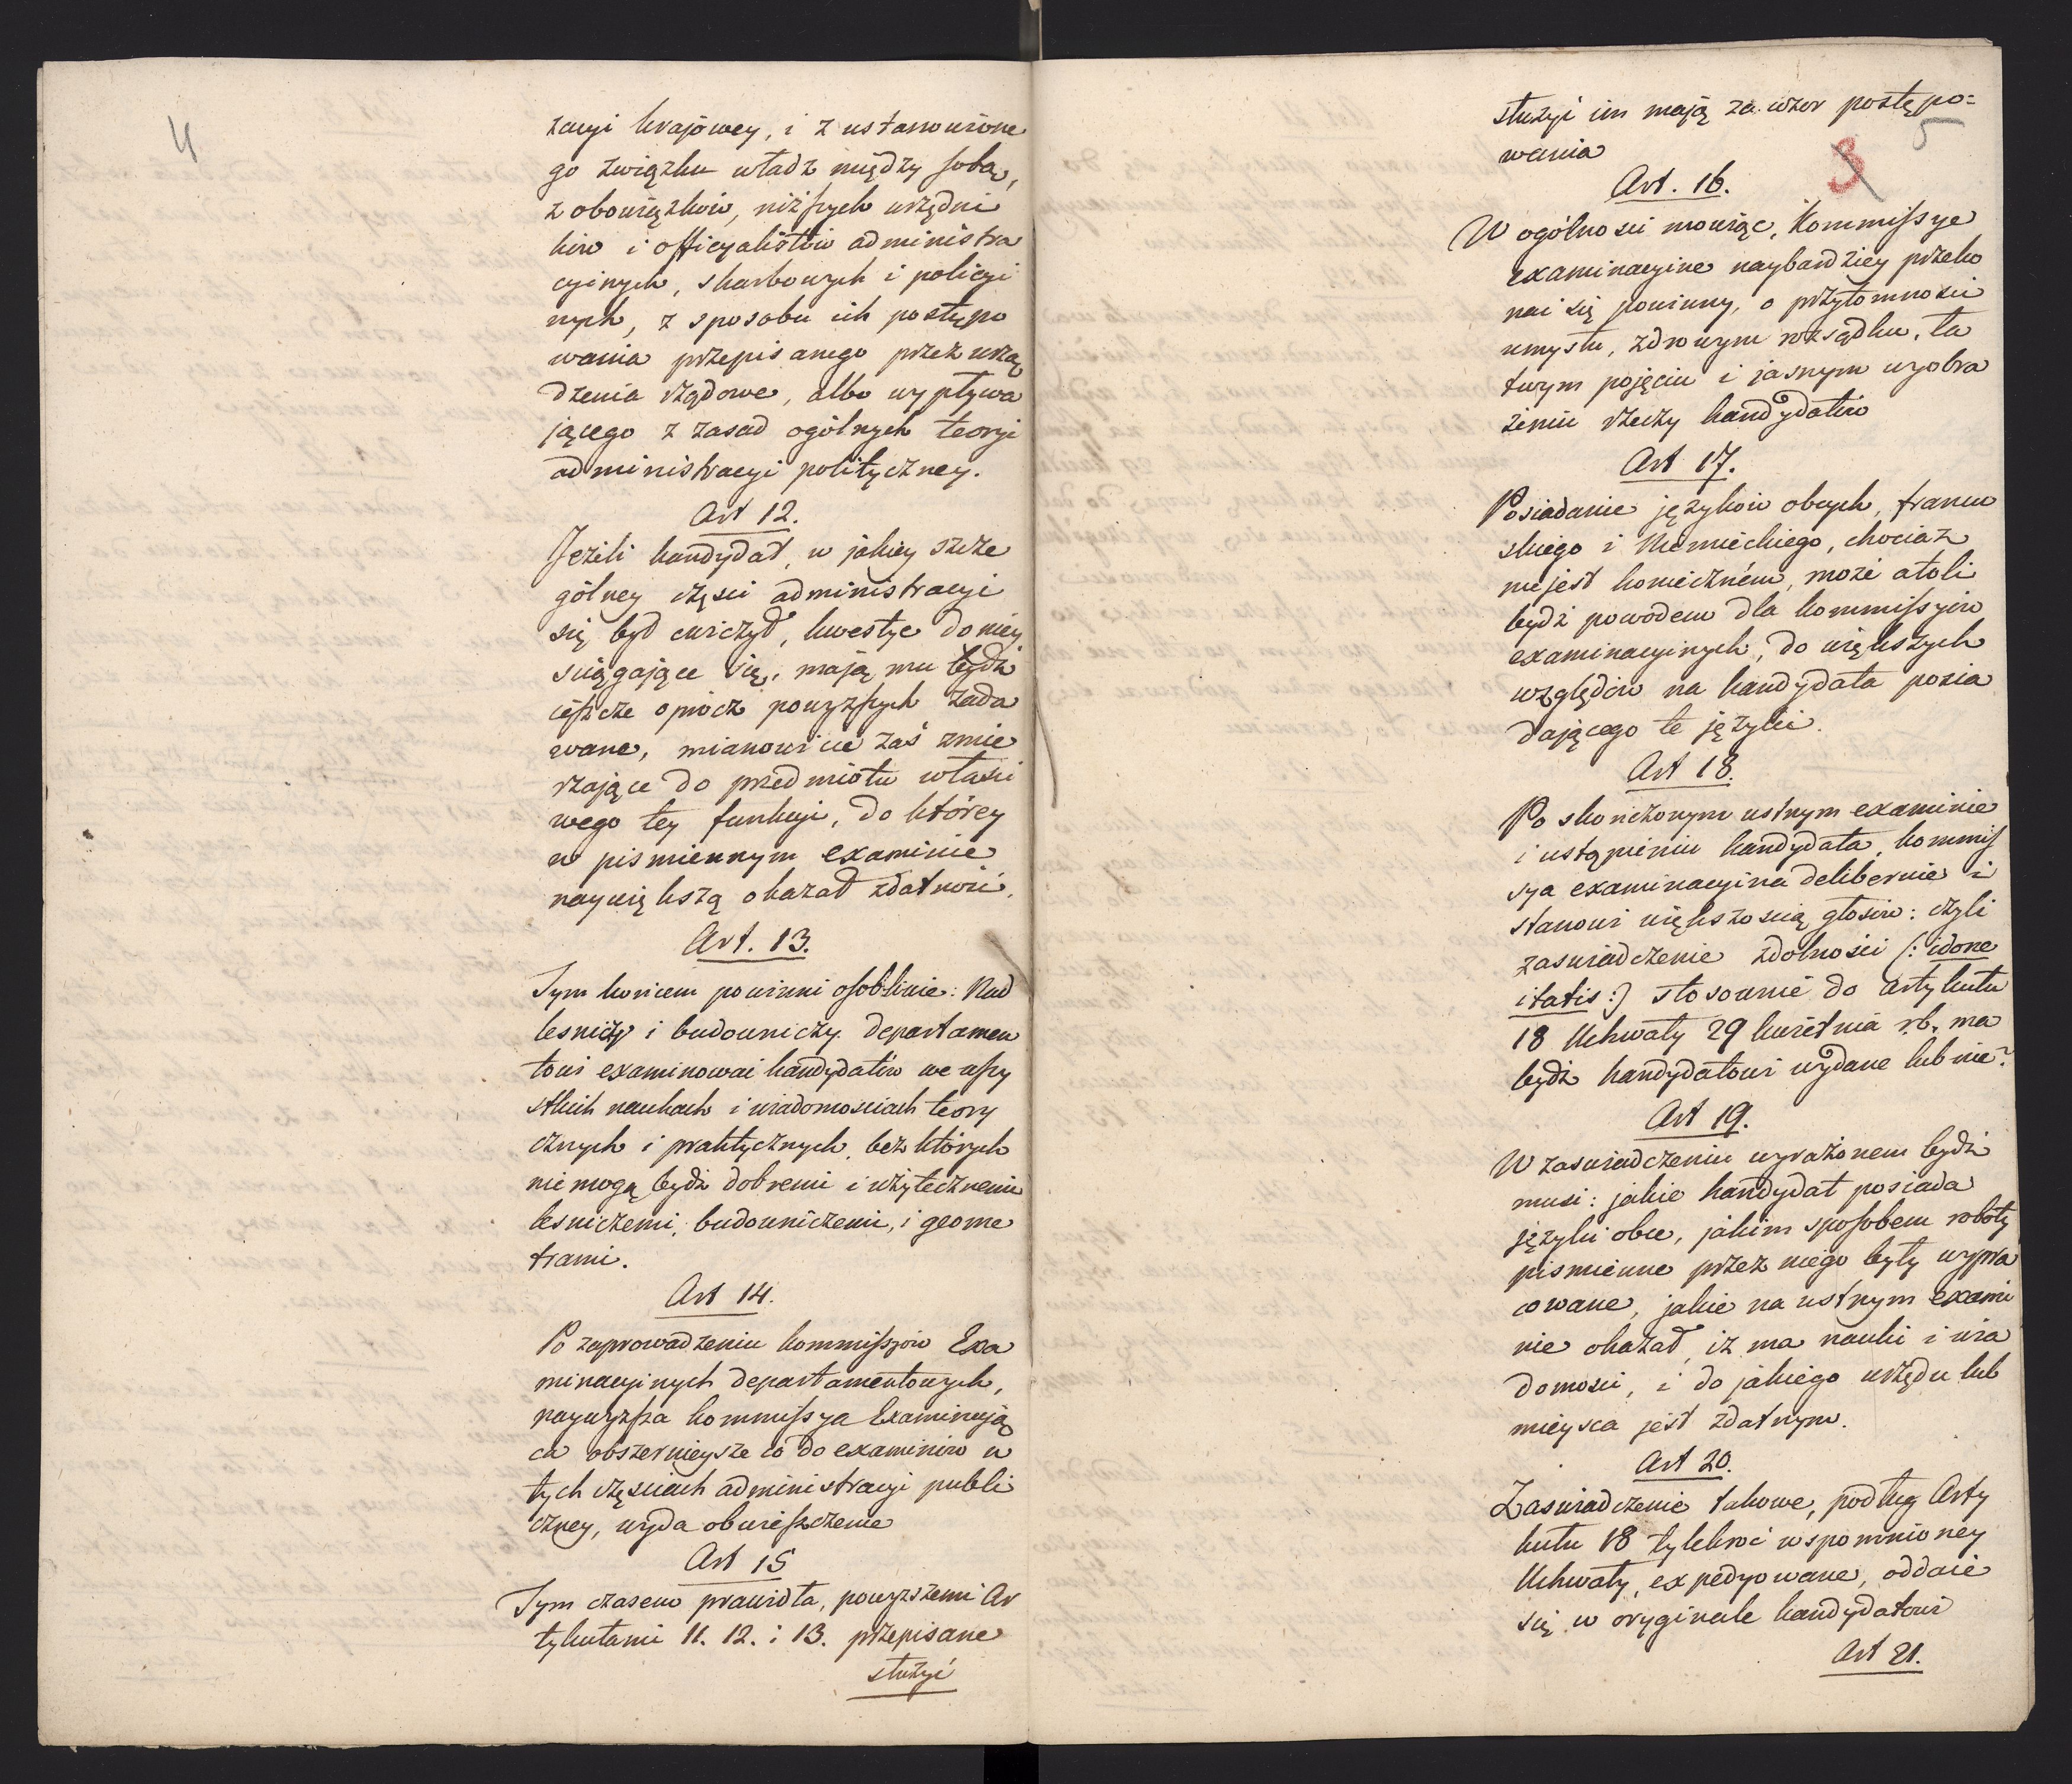 4
zacyi krajowey, i z ustanowione
go związku władz między sobą,
z obowiązków, niższych urzędni
ków i officyalistów administra
cyinych, skarbowych i policyi
nych, z sposobu ich postępo
wania przepisanego przez urzą
dzenia rządowe, albo wypływa
jącego z zasad ogólnych teoryi
administracyi polityczney.
Art 12.
Jeżeli kandydat, w jakiey szcze
gólney części administracyi
się był ćwiczył, kwestye do niey
ściągające się, mają mu bydź
ieszcze oprócz powyższych zada
wane, mianowicie zaś zmie
rzające do przedmiotu właści
wego tey funkcyi, do którey
w pismiennym examinie
naywiększą okazał zdatność.
Art. 13.
Tym końcem powinni osobliwie: Nad
leśniczy i budowniczy departamen
towi examinować kandydatów we wszy
stkich naukach i wiadomościach teory
cznych i praktycznych, bez których
nie mogą bydź dobremi i użytecznemi
leśniczemi, budowniczemi, i geome
trami.
Art 14.
Po zaprowadzeniu kommissyów Exa
minacyinych departamentowych,
naywyższa kommissya Examinują
ca obszernieysze co do examinów w
tych częściach administracyi publi
czney, wyda obwieszczenie
Art 15
Tym czasem prawidła, powyższemi Ar
tykułami 11. 12. i 13. przepisane
służyć
5
3
służyć im mają za wzor postępo=
wania
Art. 16.
W ogólności mówiąc, Kommissye
examinacyine naybardziey przeko
nać się powinny, o przytomności
umysłu, zdrowym rozsądku, ła
twym pojęciu i jasnym wyobra
żeniu rzeczy kandydatów
Art 17.
Posiadanie języków obcych, francu
skiego i Niemieckiego, chociaż
nie jest konieczném, może atoli
bydź powodem dla kommissyiów
examinacyinych, do większych
względów na kandydata posia
dającego te języki.
Art 18.
Po skończonym ustnym examinie
i ustąpieniu kandydata, kommis
sya examinacyina deliberuie i
stanowi większością głosów: czyli
zaświadczenie zdolności (: idone
itatis :) stosownie do artykułu
18 Uchwały 29 kwietnia r.b. ma
bydź kandydatowi wydane lub nie?
Art 19.
W zaświadczeniu wyrażonem bydź
musi: jakie kandydat posiada
języki obce, jakim sposobem roboty
pismienne przez niego były wypra
cowane, jakie na ustnym exami
nie okazał, iż ma nauki i wia
domości, i do jakiego urzędu lub
mieysca jest zdatnym.
Art 20.
Zaświadczenie takowe, podług Arty
kułu 18 tylekroć wspomnioney
Uchwały, expedyowane, oddaie
się w oryginale kandydatowi
Art 21.